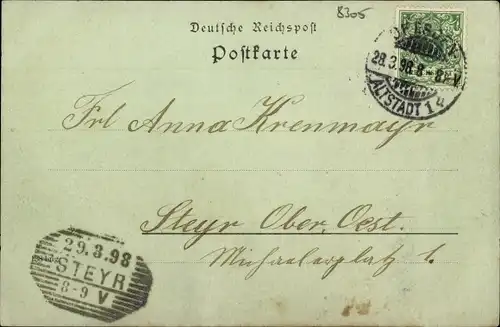 8305
Deutsche Reichspost
Postkarte
DRESDEN
28.3.98. 8-9 V
ALTSTADT 1 d
Frl Anna Krenmayr
Steyr Ober. Oest.
Michaelerplatz 1.
29.3.98
STEYR
8-9 V